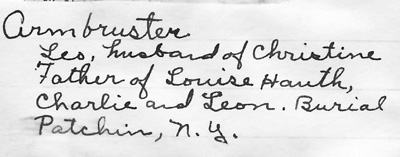 Armbruster
Leo, husband of Christine
Father of Louise Hauth,
Charlie and Leon. Burial
Patchin, N.Y.